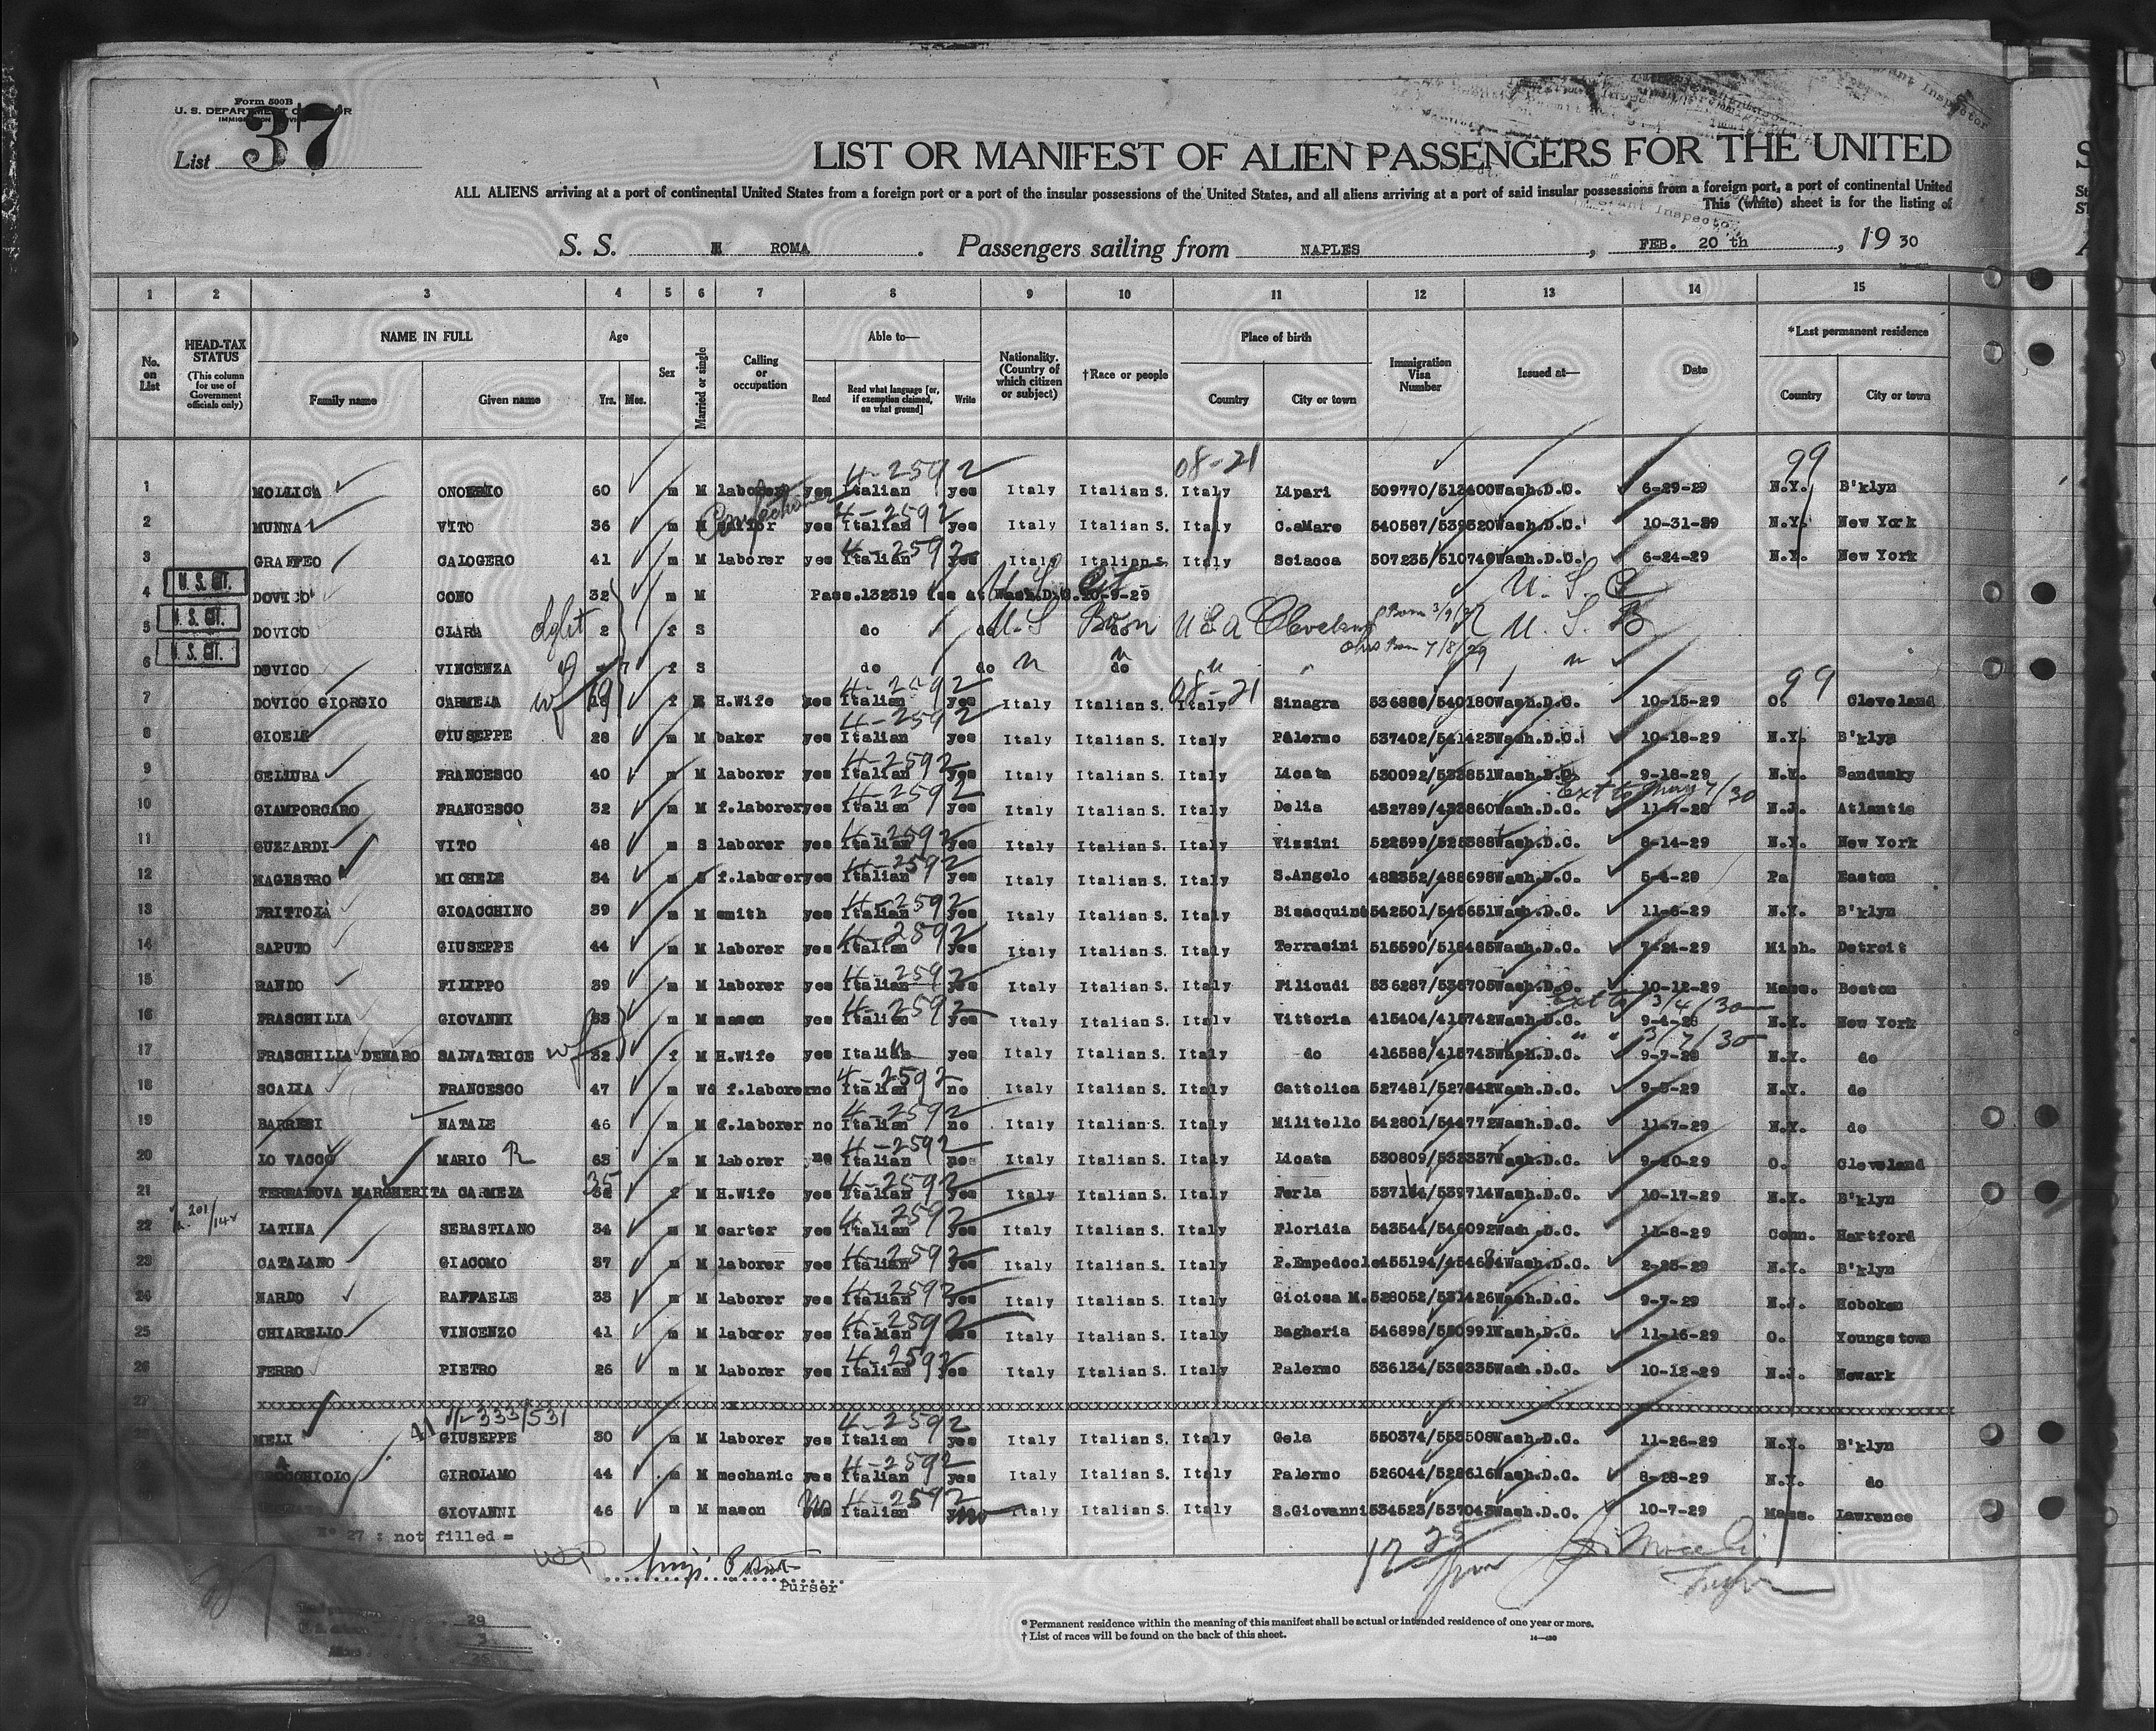 Form 500B
U. S. DEPARTMENT OF LABOR
IMMIGRATION SERVICE
List 37
LIST OR MANIFEST OF ALIEN PASSENGERS FOR THE UNITED
ALL ALIENS arriving at a port of continental United States from a foreign port or a port of the insular possessions of the United States, and all aliens arriving at a port of said insular possessions from a foreign port, a port of continental United
This (white) sheet is for the listing of
S. S. ROMA. Passengers sailing from NAPLES, FEB. 20 th, 19 30
1 2 3 4 5 6 7 8 9 10 11 12 13 14 15
No. on List HEAD-TAX STATUS (This column for use of Government officials only) NAME IN FULL Family name Given name Age Yrs. Mos. Sex Married or single Calling or occupation Able to— Read Read what language [or, if exemption claimed, on what ground] Write Nationality. (Country of which citizen or subject) †Race or people Place of birth Country City or town Immigration Visa Number Issued at— Date *Last permanent residence Country City or town
4-2592 08-21 99
1 MOLLICA ONOFRIO 60 m M laborer yes Italian yes Italy Italian S. Italy Lipari 509770/513400 Wash.D.C. 6-29-29 N.Y. B'klyn
Confectioner 4-2592
2 MUNNA VITO 36 m M yes Italian yes Italy Italian S. Italy C.aMare 540587/539320 Wash.D.C. 10-31-29 N.Y. New York
4-2592
3 GRAFFEO CALOGERO 41 m M laborer yes Italian yes Italy Italian S. Italy Sciacca 507235/510740 Wash.D.C. 6-24-29 N.Y. New York
U. S. CIT. U S Cit U. S. C
4 DOVICO CONO 32 m M Pass.132319 iss at Wash.D.C.10-9-29
U. S. CIT. dght U.S Born USA Cleveland Born 3/9/27 U. S. B
5 DOVICO CLARA 2 f S do do do
U. S. CIT. Ohio Born 7/8/29
6 DOVICO VINCENZA f S do do do
wf 4-2592 08-21 99
7 DOVICO GIORGIO CARMELA f H.Wife yes Italian yes Italy Italian S. Italy Sinagra 536888/540180 Wash.D.C. 10-15-29 O. Cleveland
4-2592
8 GIOELE GIUSEPPE 28 m M baker yes Italian yes Italy Italian S. Italy Palermo 537402/541423 Wash.D.C. 10-18-29 N.Y. B'klyn
4-2592
9 CELLURA FRANCESCO 40 m M laborer yes Italian yes Italy Italian S. Italy Licata 530092/533851 Wash.D.C. 9-18-29 N.Y. Sandusky
4-2592 Ext to May 7/30
10 GIAMPORCARO FRANCESCO 32 m M f.laborer yes Italian yes Italy Italian S. Italy Delia 432789/433860 Wash.D.C. 11-7-28 N.J. Atlantic
4-2592
11 GUZZARDI VITO 48 m S laborer yes Italian yes Italy Italian S. Italy Vizzini 522599/525388 Wash.D.C. 8-14-29 N.Y. New York
4-2592
12 MAGESTRO MICHELE 34 m S f.laborer yes Italian yes Italy Italian S. Italy S.Angelo 482352/488698 Wash.D.C. Pa Easton
4-2592
13 FRITTOLA GIOACCHINO 39 m M smith yes Italian yes Italy Italian S. Italy Bisacquino 542501/545651 Wash.D.C. 11-6-29 N.Y. B'klyn
4-2592
14 SAPUTO GIUSEPPE 44 m M laborer yes Italian yes Italy Italian S. Italy Terrasini 515590/518485 Wash.D.C. 7-24-29 Mich. Detroit
4-2592
15 RANDO FILIPPO 39 m M laborer yes Italian yes Italy Italian S. Italy Filicudi 536287/535705 Wash.D.C. 10-12-29 Mass. Boston
4-2592 Ext to 3/4/30
16 FRASCHILLA GIOVANNI 33 m M mason yes Italian yes Italy Italian S. Italy Vittoria 415404/415742 Wash.D.C. 9-4-28 N.Y. New York
wf " " 3/7/30
17 FRASCHILLA DENARO SALVATRICE 32 f M H.Wife yes Italian yes Italy Italian S. Italy do 416588/415743 Wash.D.C. 9-7-28 N.Y. do
4-2592
18 SCALIA FRANCESCO 47 m Wd f.laborer no Italian no Italy Italian S. Italy Cattolica 527481/527842 Wash.D.C. 9-5-29 N.Y. do
4-2592
19 BARRESI NATALE 46 m M f.laborer no Italian no Italy Italian S. Italy Militello 542801/544772 Wash.D.C. 11-7-29 N.Y. do
4-2592
20 LO VACCO MARIO R 63 m M laborer no Italian no Italy Italian S. Italy Licata 530809/533337 Wash.D.C. 9-20-29 O. Cleveland
35 4-2592
21 TERRANOVA MARGHERITA CARMELA f M H.Wife yes Italian yes Italy Italian S. Italy Ferla Wash.D.C. 10-17-29 N.Y. B'klyn
4-2592
22 LATINA SEBASTIANO 34 m M carter yes Italian yes Italy Italian S. Italy Floridia 543544/546092 Wash.D.C. 11-8-29 Conn. Hartford
4-2592
23 CATALANO GIACOMO 37 m M laborer yes Italian yes Italy Italian S. Italy P.Empedocle Wash.D.C. 2-25-29 N.Y. B'klyn
4-2592
24 NARDO RAFFAELE 33 m M laborer yes Italian yes Italy Italian S. Italy Gioiosa M. 528052/531426 Wash.D.C. 9-7-29 N.J. Hoboken
4-2592
25 CHIARELLO VINCENZO 41 m M laborer yes Italian yes Italy Italian S. Italy Bagheria 546898/550991 Wash.D.C. 11-16-29 O. Youngstown
4-2592
26 FERRO PIETRO 26 m M laborer yes Italian yes Italy Italian S. Italy Palermo 536134/538335 Wash.D.C. 10-12-29 N.J. Newark
27
41 333/531 4-2592
MELI GIUSEPPE 30 m M laborer yes Italian yes Italy Italian S. Italy Gela 550374/553508 Wash.D.C. 11-26-29 N.Y. B'klyn
4-2592
GIROLAMO 44 m M mechanic yes Italian yes Italy Italian S. Italy Palermo 526044/528616 Wash.D.C. 8-28-29 N.Y. do
4-2592
GIOVANNI 46 m M mason No Italian no Italy Italian S. Italy S.Giovanni 534523/537043 Wash.D.C. 10-7-29 Mass. Lawrence
N° 27 : not filled =
Purser
29
3
* Permanent residence within the meaning of this manifest shall be actual or intended residence of one year or more.
† List of races will be found on the back of this sheet.